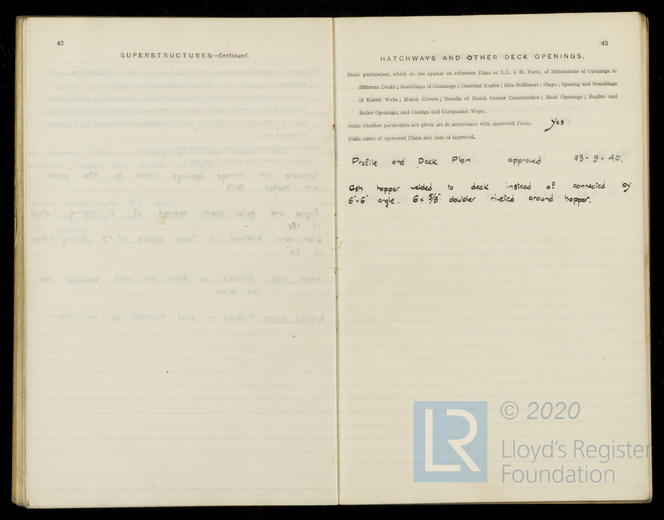 42
SUPERSTRUCTURES—Continued.
43
HATCHWAYS AND OTHER DECK OPENINGS.
State particulars, which do not appear on reference Plans or L.L. 4 D. Form, of Dimensions of Openings in
different Decks; Scantlings of Coamings; Coaming Angles; Side Stiffeners; Stays; Spacing and Scantlings
of Hatch Webs; Hatch Covers; Details of Hatch Corner Construction; Mast Openings; Engine and
Boiler Openings, and Casings and Companion Ways.
State whether particulars not given are in accordance with approved Plans. Yes
State name of approved Plans and date of approval.
Profile and Deck Plan approved 23-9-40.
Ash hopper welded to deck instead of connected by
6"×6" angle. 6 × 5/8" doubler riveted around hopper.
LR © 2020
Lloyd's Register
Foundation